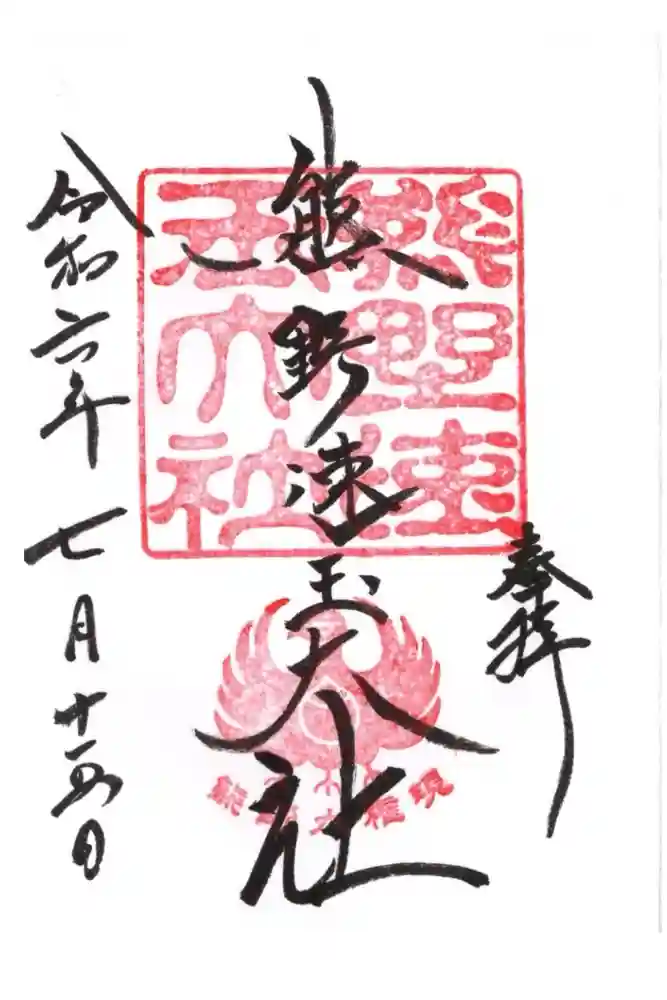 奉拝
熊野速玉大社
令和六年七月十五日
熊野速玉大社
熊野大権現